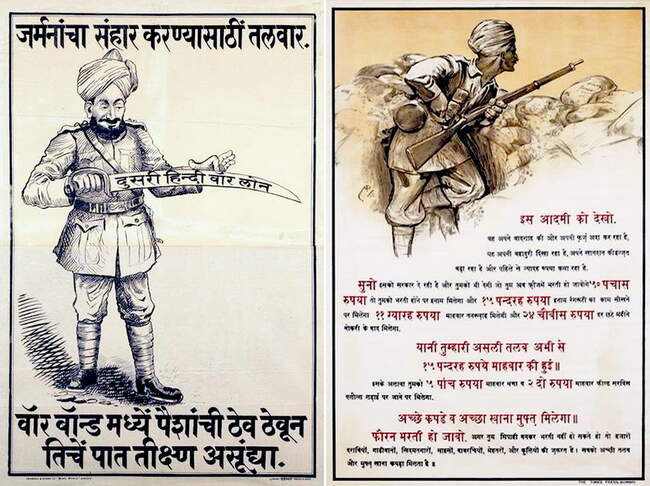 जर्मनांचा संहार करण्यासाठीं तलवार.
दुसरी हिन्दी वॉर लोन
वॉर बॉन्ड मध्यें पैशांची ठेव ठेवून
तिचें पात तीक्ष्ण असूंद्या.
इस आदमी को देखो.
यह अपने बादशाह की और अपनी फ़र्ज़ अदा कर रहा है,
यह अपनी बहादुरी दिखा रहा है, अपने खानदान की इज्जत
बढ़ा रहा है और पहिले से ज्यादह रुपया कमा रहा है.
सुनो इसको सरकार दे रही है और तुमको भी देगी जो तुम अब फ़ौजमें भरती हो जावोगे ५० पचास
रुपया तो तुमको भरती होने पर इनाम मिलेगा और १५ पन्दरह रुपया इनाम रंगरूटी का काम सीखने
पर मिलेगा ११ ग्यारह रुपया माहवार तनख्वाह मिलेगी और २४ चौबीस रुपया हर छटे महीने
नौकरी के बाद मिलेगा.
यानी तुम्हारी असली तलब अभी से
१५ पन्दरह रुपये माहवार की हुई॥
इसके अलावा तुमको ५ पांच रुपया माहवार भत्ता व २ दो रुपया माहवार फील्ड सरविस
लड़ाई पर जाने पर मिलेगा.
अच्छे कपड़े व अच्छा खाना मुफ़्त मिलेगा॥
फ़ौरन भरती हो जावो. अगर तुम सिपाही बनकर भरती नहीं हो सकते हो तो हजारों
गाडीवानों, खिदमतगारों, साइसों, बावरचियों, मेहतरों, और कूलियों की जरूरत है। सबको अच्छी तलब
और मुफ़्त खाना कपड़ा मिलता है॥
THE TIMES PRESS, BOMBAY.